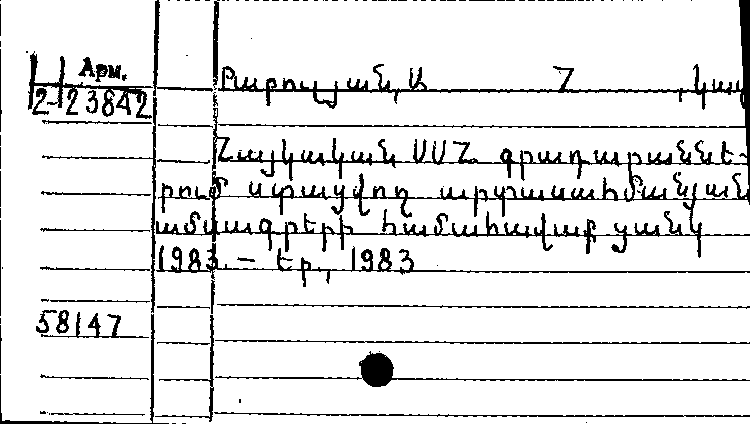 Арм.
2-23842
Բարուլյան, Ա Հ , կազ
Հայկական ՍՍՀ գրադարաննե-
րում ստացվող արտասահմանյան
ամսագրերի համահավաք ցանկ
1983. – Եր., 1983
58147